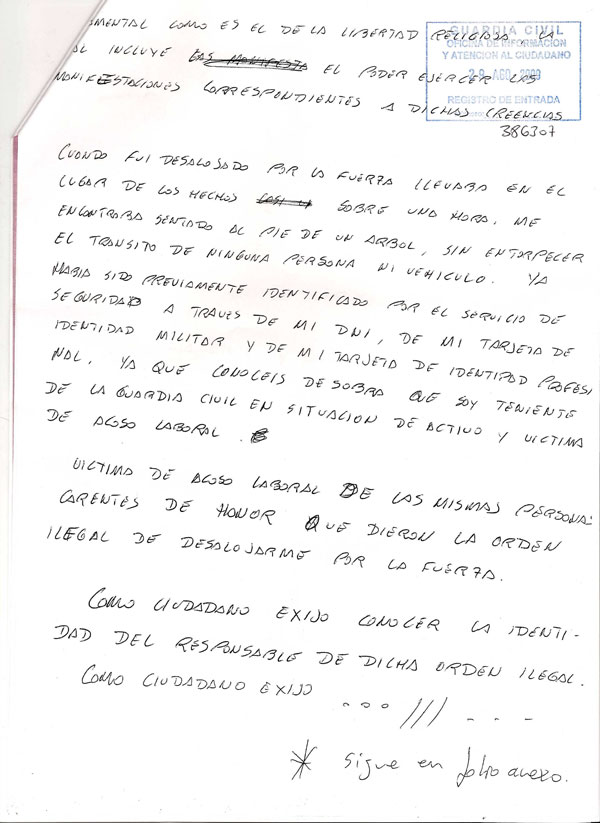 MENTAL COMO ES EL DE LA LIBERTAD RELIGIOSA, LA
AL INCLUYE LAS MANIFESTA EL PODER EJERCER LAS
MANIFESTACIONES CORRESPONDIENTES A DICHAS CREENCIAS
GUARDIA CIVIL
OFICINA DE INFORMACION
Y ATENCION AL CIUDADANO
AGO.
REGISTRO DE ENTRADA
386307
CUANDO FUI DESALOJADO POR LA FUERZA LLEVABA EN EL
LUGAR DE LOS HECHOS CASI SOBRE UNA HORA. ME
ENCONTRABA SENTADO AL PIE DE UN ARBOL, SIN ENTORPECER
EL TRANSITO DE NINGUNA PERSONA NI VEHICULO. YA
HABIA SIDO PREVIAMENTE IDENTIFICADO POR EL SERVICIO DE
SEGURIDAD A TRAVES DE MI DNI, DE MI TARJETA DE
IDENTIDAD MILITAR Y DE MI TARJETA DE IDENTIDAD PROFESI
NAL, YA QUE CONOCEIS DE SOBRA QUE SOY TENIENTE
DE LA GUARDIA CIVIL EN SITUACION DE ACTIVO Y VICTIMA
DE ACOSO LABORAL.
VICTIMA DE ACOSO LABORAL DE LAS MISMAS PERSONAS
CARENTES DE HONOR QUE DIERON LA ORDEN
ILEGAL DE DESALOJARME POR LA FUERZA.
COMO CIUDADANO EXIJO CONOCER LA IDENTI-
DAD DEL RESPONSABLE DE DICHA ORDEN ILEGAL.
COMO CIUDADANO EXIJO ... /// ---
* Sigue en folio anexo.